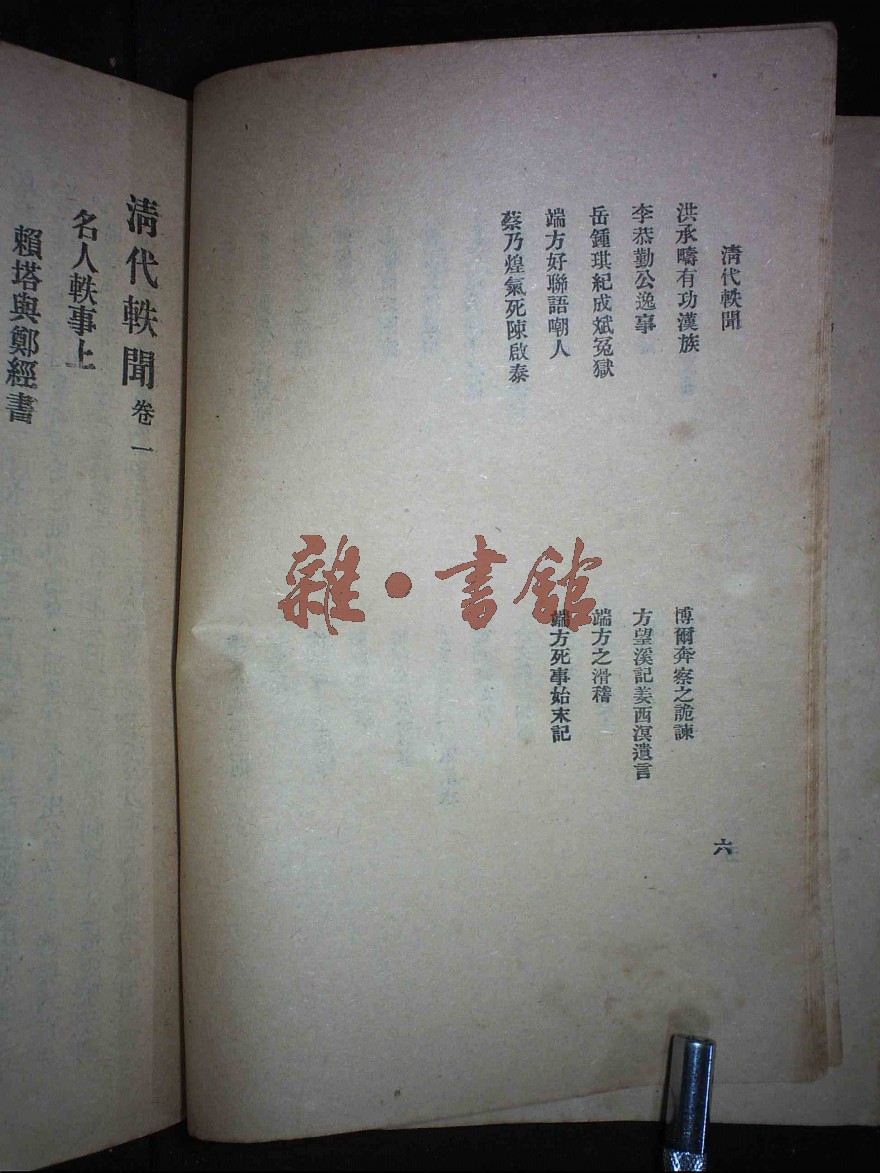 清代軼聞
洪承疇有功漢族
博爾奔察之詭諫
李恭勤公逸事
方望溪記姜西溟遺言
岳鍾琪紀成斌冤獄
端方之滑稽
端方好聯語嘲人
端方死事始末記
蔡乃煌氣死陳啟泰
六
清代軼聞 卷一
名人軼事上
賴塔與鄭經書
雜·書館